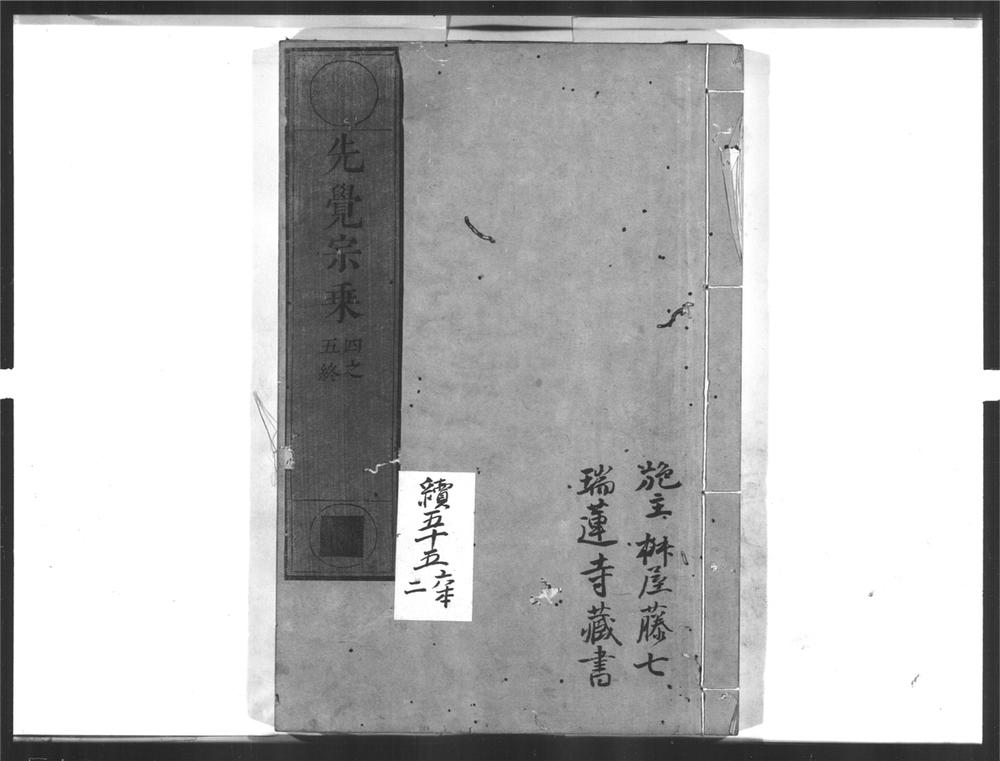 施主 桝屋藤七
瑞蓮寺藏書
先覺宗乗
四之
五終
續五十五
六本
二